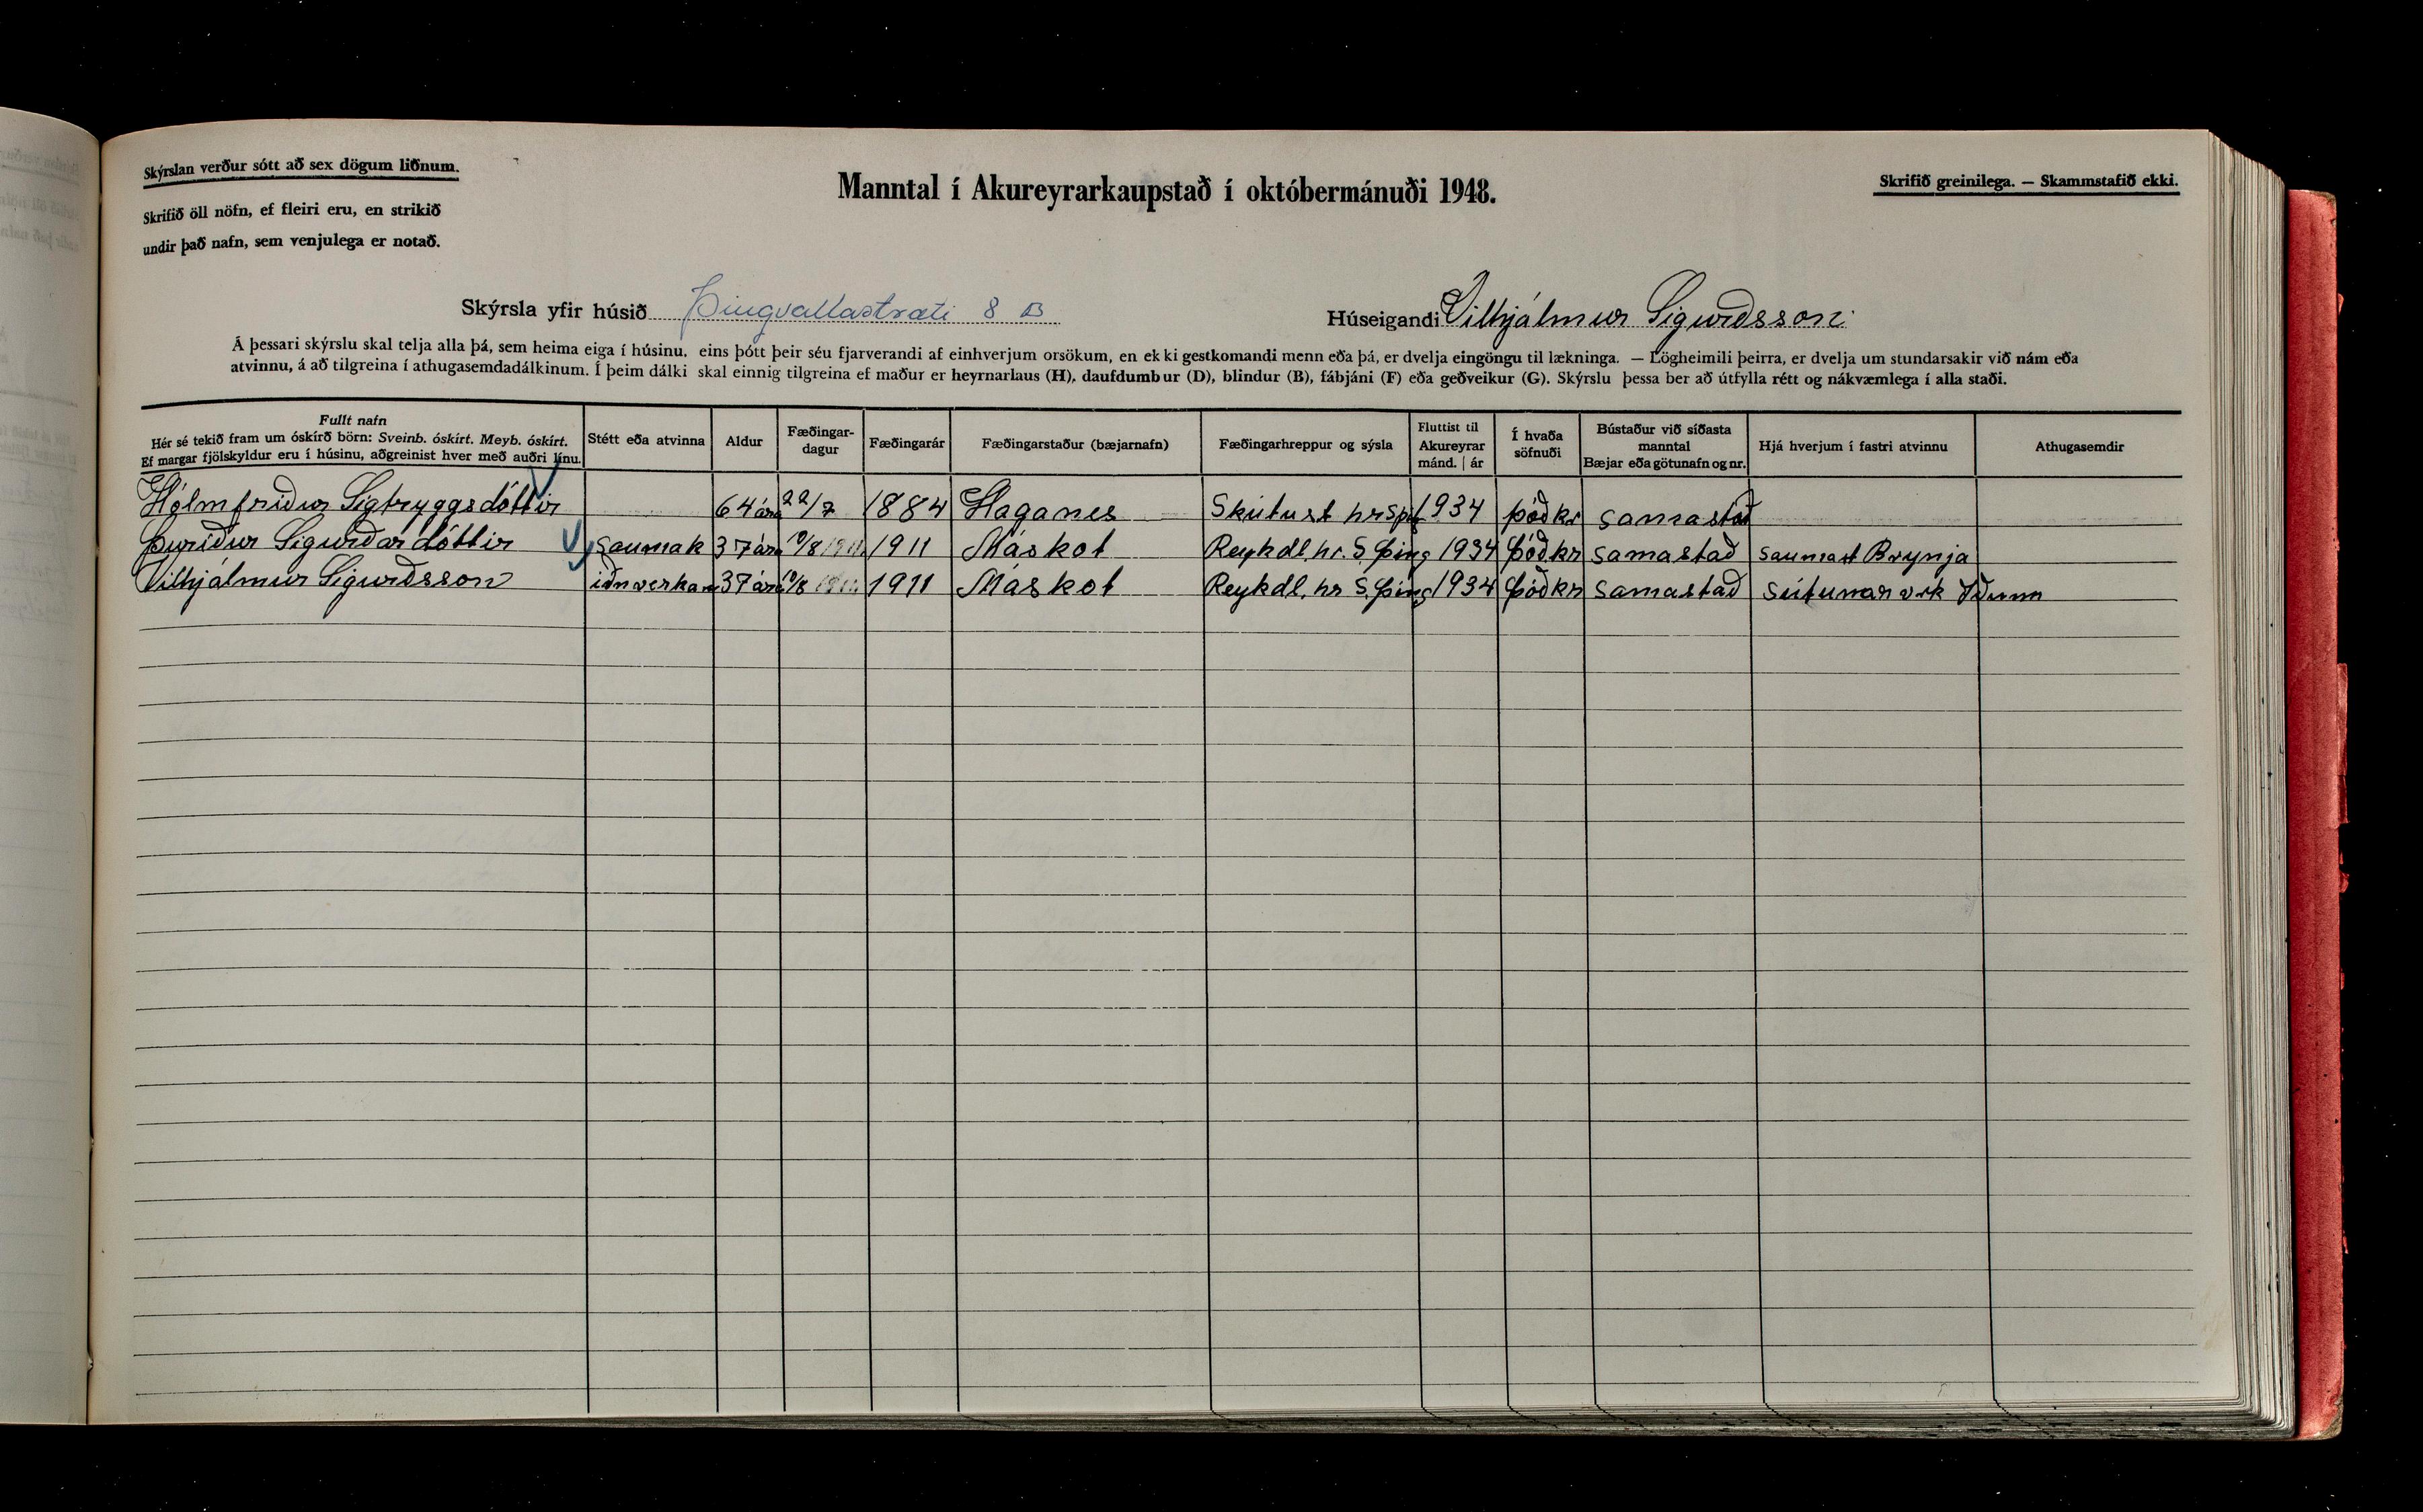 Skýrslan verður sótt að sex dögum liðnum.
Skrifið öll nöfn, ef fleiri eru, en strikið
undir það nafn, sem venjulega er notað.
Manntal í Akureyrarkaupstað í októbermánuði 1948.
Skrifið greinilega. — Skammstafið ekki.
Skýrsla yfir húsið Þingvallastræti 8 B
Húseigandi Vilhjálmur Sigurðsson
Á þessari skýrslu skal telja alla þá, sem heima eiga í húsinu, eins þótt þeir séu fjarverandi af einhverjum orsökum, en ekki gestkomandi menn eða þá, er dvelja eingöngu til lækninga. — Lögheimili þeirra, er dvelja um stundarsakir við nám eða
atvinnu, á að tilgreina í athugasemdadálkinum. Í þeim dálki skal einnig tilgreina ef maður er heyrnarlaus (H), daufdumbur (D), blindur (B), fábjáni (F) eða geðveikur (G). Skýrslu þessa ber að útfylla rétt og nákvæmlega í alla staði.
Fullt nafn
Hér sé tekið fram um óskírð börn: Sveinb. óskírt. Meyb. óskírt.
Ef margar fjölskyldur eru í húsinu, aðgreinist hver með auðri línu.
Stétt eða atvinna
Aldur
Fæðingar-
dagur
Fæðingarár
Fæðingarstaður (bæjarnafn)
Fæðingarhreppur og sýsla
Fluttist til
Akureyrar
mánd. | ár
Í hvaða
söfnuði
Bústaður við síðasta
manntal
Bæjar eða götunafn og nr.
Hjá hverjum í fastri atvinnu
Athugasemdir
Hólmfríður Sigtryggsdóttir 64 ára 22/7 1884 Haganes Skútust hr 1934 þóðkr samastað
Þuríður Sigurðardóttir saumak 37 ára 10/8 1911 1911 Máskot Reykdl. hr. S. Þing 1934 þóðkr samastað saumast Brynja
Vilhjálmur Sigurðsson iðnverkam 37 ára 10/8 1911 1911 Máskot Reykdl. hr S. Þing 1934 þóðkr samastað Sútunar vrk Iðunn